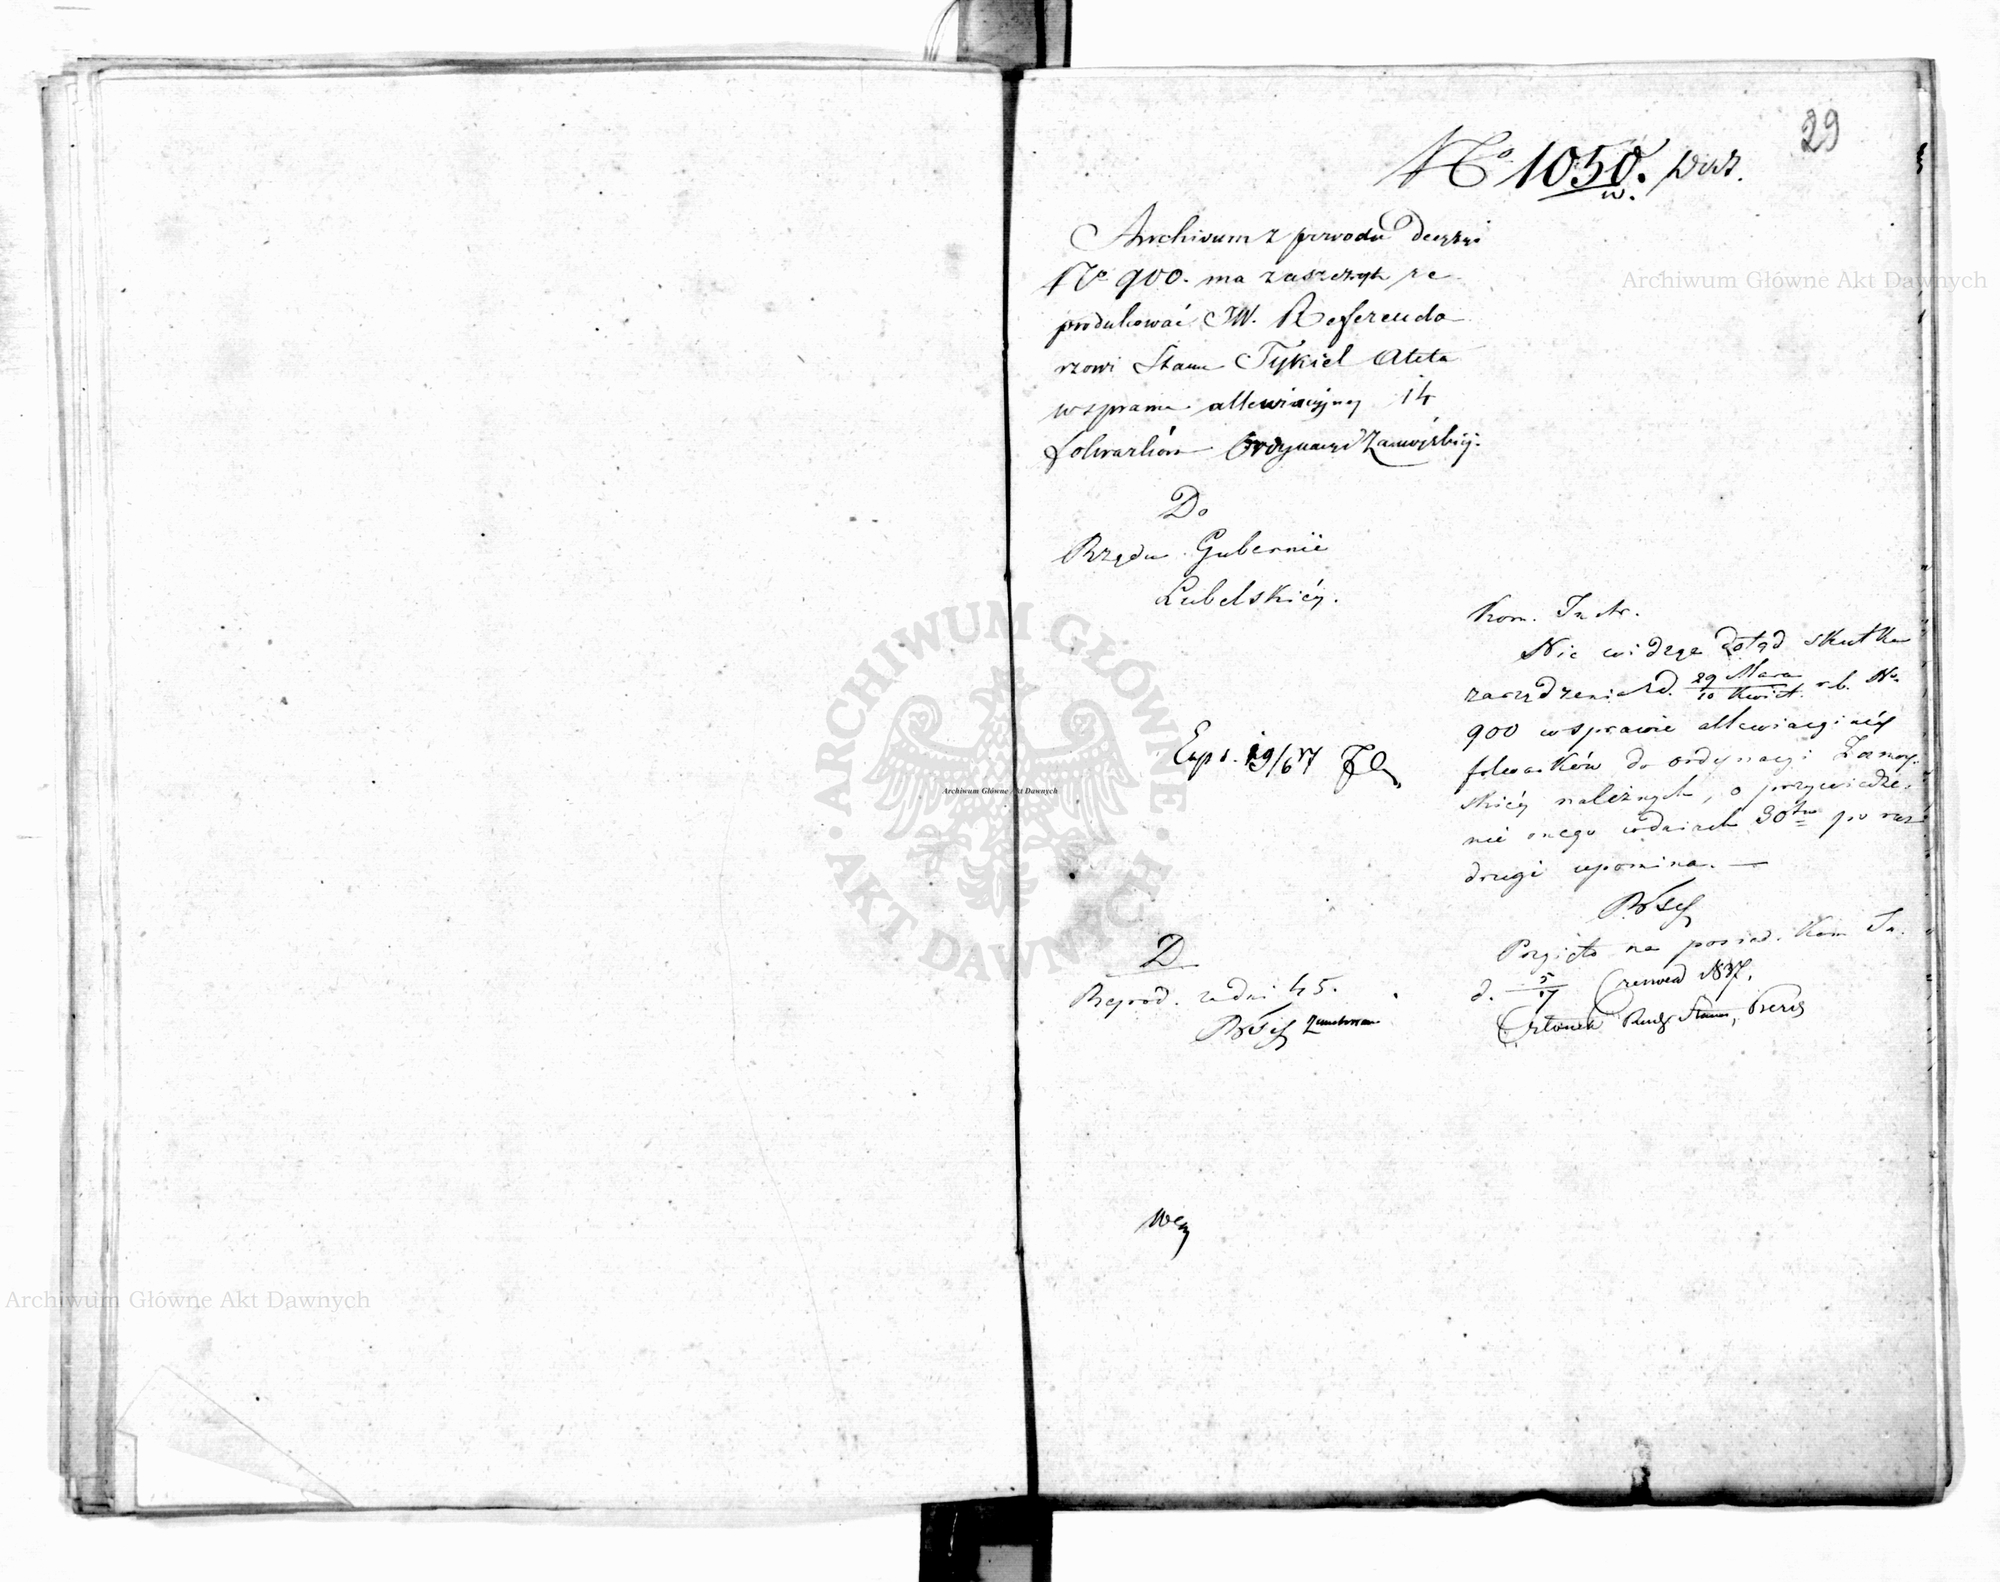 29
No 1050.
w.
Archivum z powodu decyzyi
No 900. ma zaszczyt re
produkować JW. Referenda
rzowi Stanu Tykiel Akta
w sprawie allewiacyjney 14
folwarków Ordynacyi Zamoyskiéj.
Do
Rządu Gubernii
Lubelskiéy.
Exp d. 19/6 37
D
Reprod. za dni 45.
Kom. Instr.
Nie widząc dotąd skutku
zarządzenia z d. 29 Marca / 10 Kwiet. r.b. No
900 w sprawie allewiacyinéy
folwarków do ordynacyi Zamoy-
skiéy należnych, o przywiedze-
nie onego w dniach 30tu po raz
drugi upomina. —
Przyięto na posied. Kom. In.
d. 5/17 Czerwca 1837.
Członek Rady Stanu, Prezes
Archiwum Główne Akt Dawnych
ARCHIWUM GŁÓWNE
AKT DAWNYCH
Archiwum Główne Akt Dawnych
Archiwum Główne Akt Dawnych